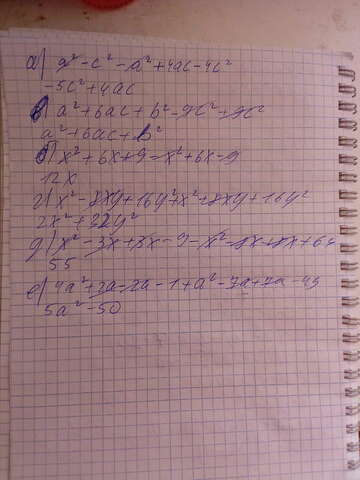 а) a² - c² - a² + 4ac - 4c²
-5c² + 4ac
в) a² + 6ac + b² - 9c² + 9c²
a² + 6ac + b²
б) x² + 6x + 9 - x² + 6x - 9
12x
г) x² - 8xy + 16y² + x² + 8xy + 16y²
2x² + 32y²
д) x² - 3x + 3x - 9 - x² - 8x + 8x + 64
55
е) 4a² + 2a - 2a - 1 + a² - 7a + 7a - 49
5a² - 50